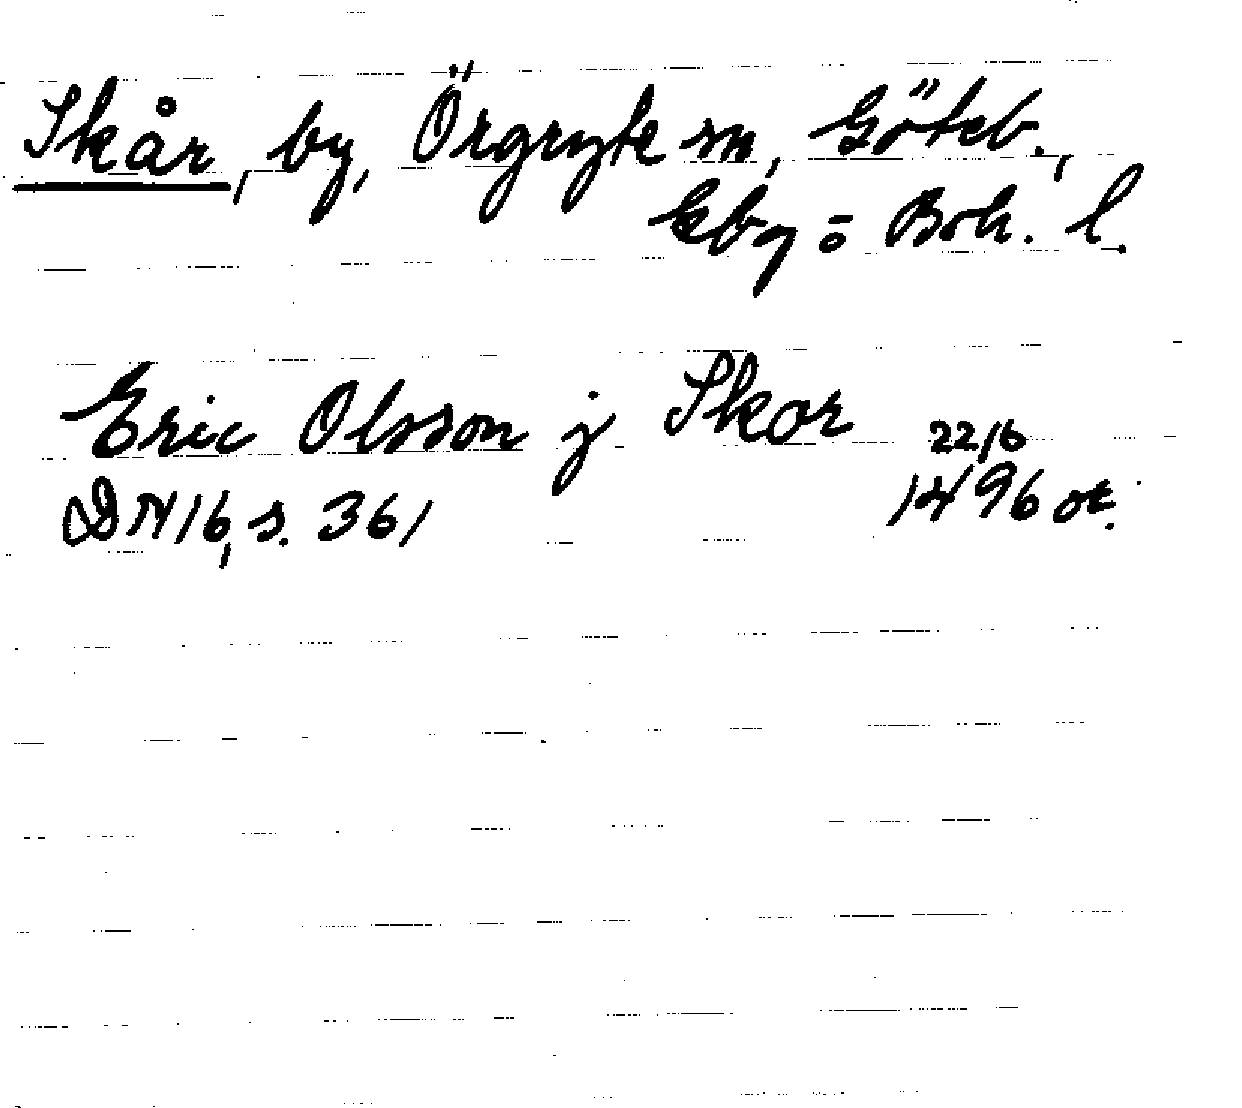 Skår, by, Örgryte sn, Göteb.,
Gbg o Boh. l.
Eric Olsson j Skor 22/6
DN 16, s. 361 1496 or.